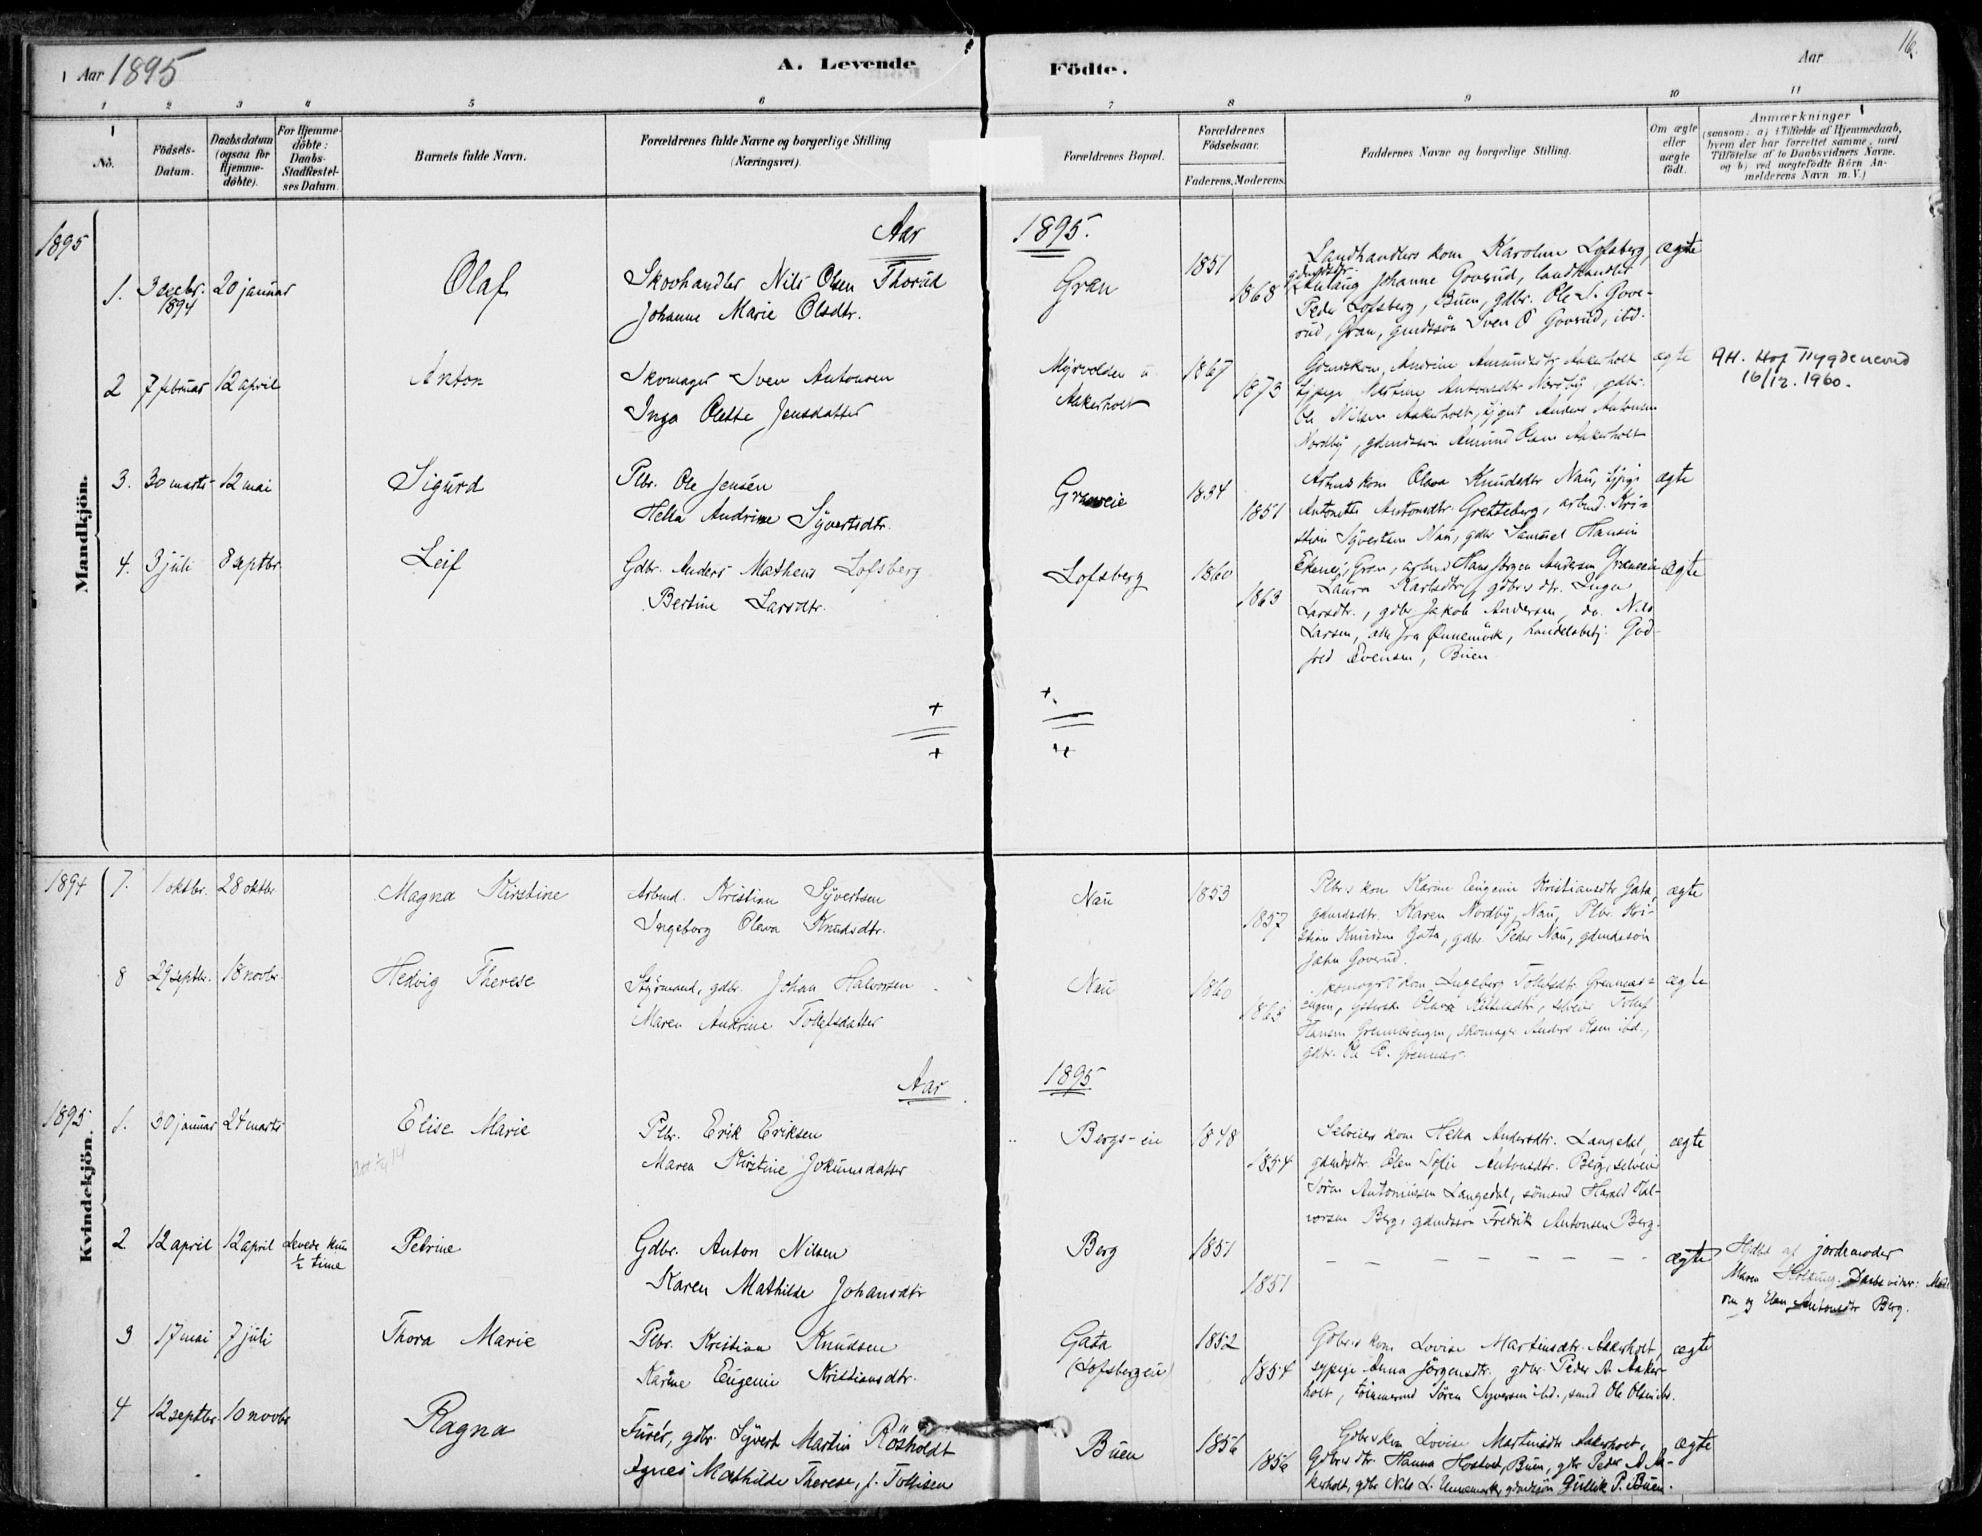 Aar 1895
A. Levende
Födte.
Aar
16.
1 2 3 4 5 6 7 8 9 10 11
No.
Födsels-
Datum.
Daabsdatum
(ogsaa for
Hjemme-
döbte).
For Hjemme-
döbte:
Daabs-
Stadfæstel-
ses Datum.
Barnets fulde Navn.
Forældrenes fulde Navne og borgerlige Stilling
(Næringsvei).
Forældrenes Bopæl.
Forældrenes
Födselsaar.
Faderens. Moderens.
Faddernes Navne og borgerlige Stilling.
Om ægte
eller
uægte
födt.
Anmærkninger
(saasom: a) i Tilfælde af Hjemmedaab,
hvem der har forrettet samme, med
Tilföielse af to Daabsvidners Navne.
og b) ved uægtefödte Börn An-
melderens Navn m. V.)
Mandkjön.
1895
Aar
1895.
1. 3 decbr. 1894 20 januar
Olaf
Skovhandler Nils Olsen Thorud
Johanne Marie Olsdtr.
Gran
1851
1868
Landhandlers kone Karoline Lofsberg,
gdmdsdtr. Johanne Goverud, landhandler
Peder Lofsberg, Buen, gdbr. Ole S. Gove-
rud, Gran, gmdssön Sven O Goverud, ibd.
ægte
2 7 februar 12 april
Anton
Skomager Sven Antonsen
Inga Olette Jensdatter
Aakerholt
1867
1873
Andrine Amundsdtr Aakerholt
tjpige Antonsdtr Nordby, gdbr.
Ole Nilsen Aakerholt, tjgut Anders Antonsen
Nordby, gdmdssön Amund Olsen Aakerholt
ægte
16/12. 1960.
3. 30 marts 12 mai
Sigurd
Plbr. Ole Jensen
Hella Andrine Syvertsdtr.
Graneie
1834
1851
Arbmds kone Oleva Knudsdtr Nau, tjpige
Antonette Antonsdtr. Gretteberg, arbmd. Kri-
stian Syvertsen Nau, gdbr Samuel Hansen
ægte
4. 3 juli 8 septbr.
Leif
Gdbr. Anders Mathens Lofsberg
Bertine Larsdtr.
Lofsberg
1860
1863
Ekenes, Gran, arbmd Hans Jörgen Andersen Graneeie
Laura Karlsdtr, gdbrs dtr. Inga
Larsdtr., gdbr Jakob Andersen, do. Nils
Larsen, alle fra Önnemörk, handelsbetj. God-
fred Evensen, Buen
ægte
+ +
+ +
Kvindekjön.
1894
7. 1 oktbr. 28 oktbr
Magna Kirstine
Arbmd. Kristian Syvertsen
Ingeborg Oleva Knudsdtr.
Nau
1853
1857
Plbr.s kone Karine Eugenie Kristiansdtr Gata,
gdmdsdtr. Karen Nordby, Nau, Plbr. Kri-
stian Knudsen Gata, gdbr. Peder Nau, gdmdssön
Goverud.
ægte
8 29 septbr. 18 novbr.
Hedvig Therese
Styrmand, gdbr. Johan Halvorsen
Maren Andrine Tollefsdatter
Nau
1860
1865
kone Ingeborg Tollefsdtr. Grennes-
engen, Hansen Grennesengen, skomager Anders Olsen ibd.,
gdbr. Ole Grennes.
ægte
Aar
1895
1895
1. 30 januar 24 marts
Elise Marie
Plbr. Erik Eriksen
Maren Kirstine Jokumsdatter
Bergs-eie
1848
1854
Selveiers kone Hella Andersdtr. Langedal,
gdmdsdtr. Elen Sofie Antonsdtr. Berg, selveier
Sören Antoniussen Langedal, sömand Harald Hal-
vorsen Berg, gdmdssön Fredrik Antonsen Berg.
ægte
2 12 april 12 april Levede kun
½ time
Petrine
Gdbr. Anton Nilsen
Karen Mathilde Johansdtr
Berg
1851
1851
— — — — — — —
ægte
Hjdbt af jordemoder
Maren Daabsvidner:
og Elen Antonsdtr Berg.
3 17 mai 7 juli
Thora Marie
Plbr. Kristian Knudsen
Karine Eugenie Kristiansdtr.
Gata
(Lofsbergeie)
1852
1854
Gdbrs kone Lovise Martinsdtr. Aakerholt,
sypige Anna Jörgensdtr. gdbr. Peder A. Aaker-
holt, tömmermd Sören Syversen ibd., smed Ole Olsen ibd.
ægte
4 12 septbr. 10 novbr
Ragna
Furér, gdbr. Syvert Martin Rösholdt
Agnes Mathilde Therese, f. Tollisen
Buen
1856
1856
Gdbrs kone Lovise Martinsdtr Aakerholt,
Gdbrs dtr. Hanna Buen, gbr Peder A. Aa-
kerholt, gdbr Nils L. Unnemork, gdmdssön Gullik P. Buen.
ægte